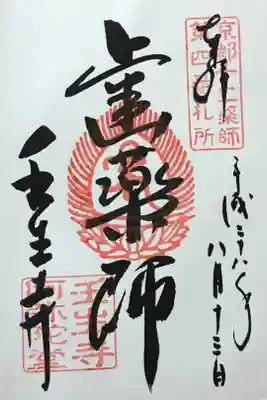 奉拝
京都十二薬師
第四番札所
平成二十八年
八月十三日
齒薬師
壬生寺
壬生寺
阿弥陀堂